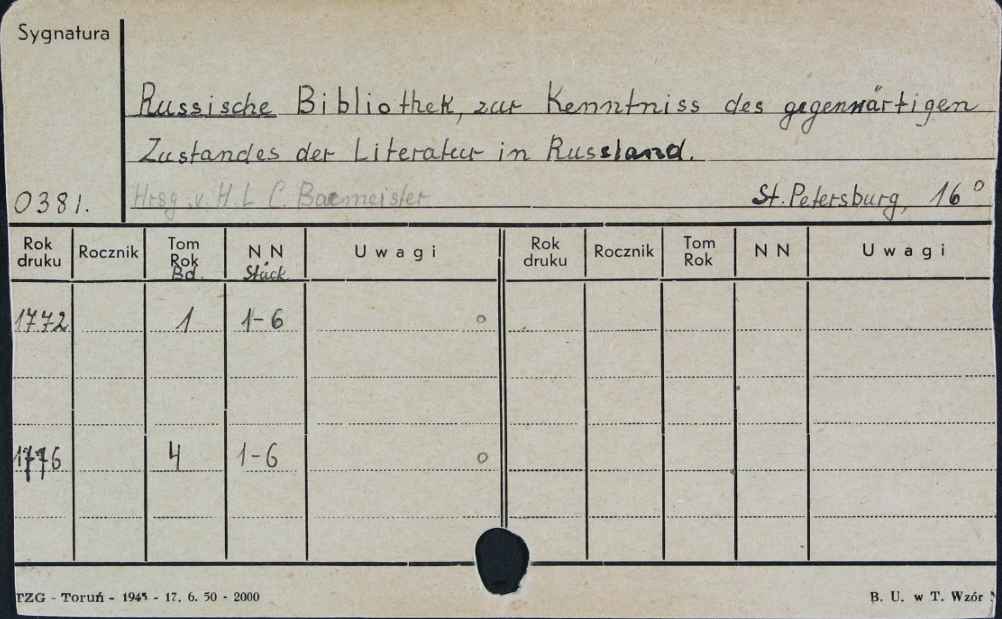 Sygnatura
Russische Bibliothek, zur Kenntniss des gegenwärtigen
Zustandes der Literatur in Russland.
0381. Hrsg. v. H. L. C. Bacmeister St. Petersburg, 16°
Rok druku Rocznik Tom Rok Bd. N N Stück U w a g i Rok druku Rocznik Tom Rok N N U w a g i
1772 1 1-6 o
1776 4 1-6 o
TZG - Toruń - 1945 - 17. 6. 50 - 2000 B. U. w T. Wzór